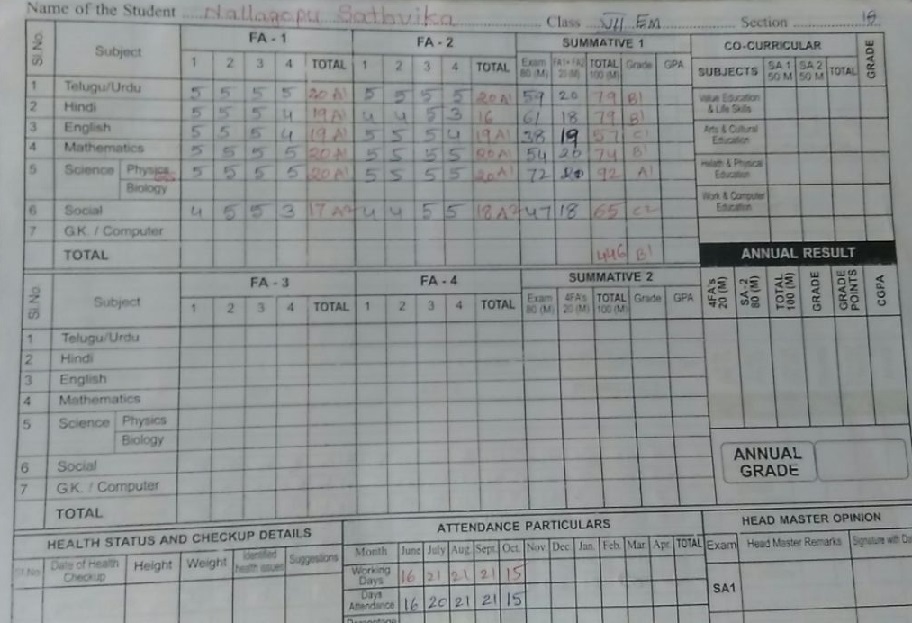 Name of the Student Nallagopu Sathvika Class VII EM Section
Sl.No Subject FA - 1 FA - 2 SUMMATIVE 1 CO-CURRICULAR GRADE
1 2 3 4 TOTAL 1 2 3 4 TOTAL Exam 80 (M) FA1+FA2 20 (M) TOTAL 100 (M) Grade GPA SUBJECTS SA 1 50 M SA 2 50 M TOTAL
1 Telugu/Urdu 5 5 5 5 20 A1 5 5 5 5 20 A1 59 20 79 B1 Value Education & Life Skills
2 Hindi 5 5 5 4 19 A1 4 4 5 3 16 61 18 79 B1
3 English 5 5 5 4 19 A1 5 5 5 4 19 A1 38 19 57 C1 Arts & Cultural Education
4 Mathematics 5 5 5 5 20 A1 5 5 5 5 20 A1 54 20 74 B1
5 Science Physics 5 5 5 5 20 A1 5 5 5 5 20 A1 72 20 92 A1 Health & Physical Education
Biology
6 Social 4 5 5 3 17 A2 4 4 5 5 18 A2 47 18 65 C2 Work & Computer Education
7 G.K. / Computer
TOTAL 446 B1
ANNUAL RESULT
Sl.No Subject FA - 3 FA - 4 SUMMATIVE 2 4FA's 20 (M) SA-2 80 (M) TOTAL 100 (M) GRADE GRADE POINTS CGPA
1 2 3 4 TOTAL 1 2 3 4 TOTAL Exam 80 (M) 4FA's 20 (M) TOTAL 100 (M) Grade GPA
1 Telugu/Urdu
2 Hindi
3 English
4 Mathematics
5 Science Physics
Biology
6 Social
7 G.K. / Computer
TOTAL
ANNUAL GRADE
HEALTH STATUS AND CHECKUP DETAILS ATTENDANCE PARTICULARS HEAD MASTER OPINION
Sl.No Date of Health Checkup Height Weight Identified health issues Suggestions Month June July Aug. Sept. Oct. Nov. Dec. Jan. Feb. Mar. Apr. TOTAL Exam Head Master Remarks Signature with
Working Days 16 21 21 21 15
Days Attendance 16 20 21 21 15 SA1
Percentage